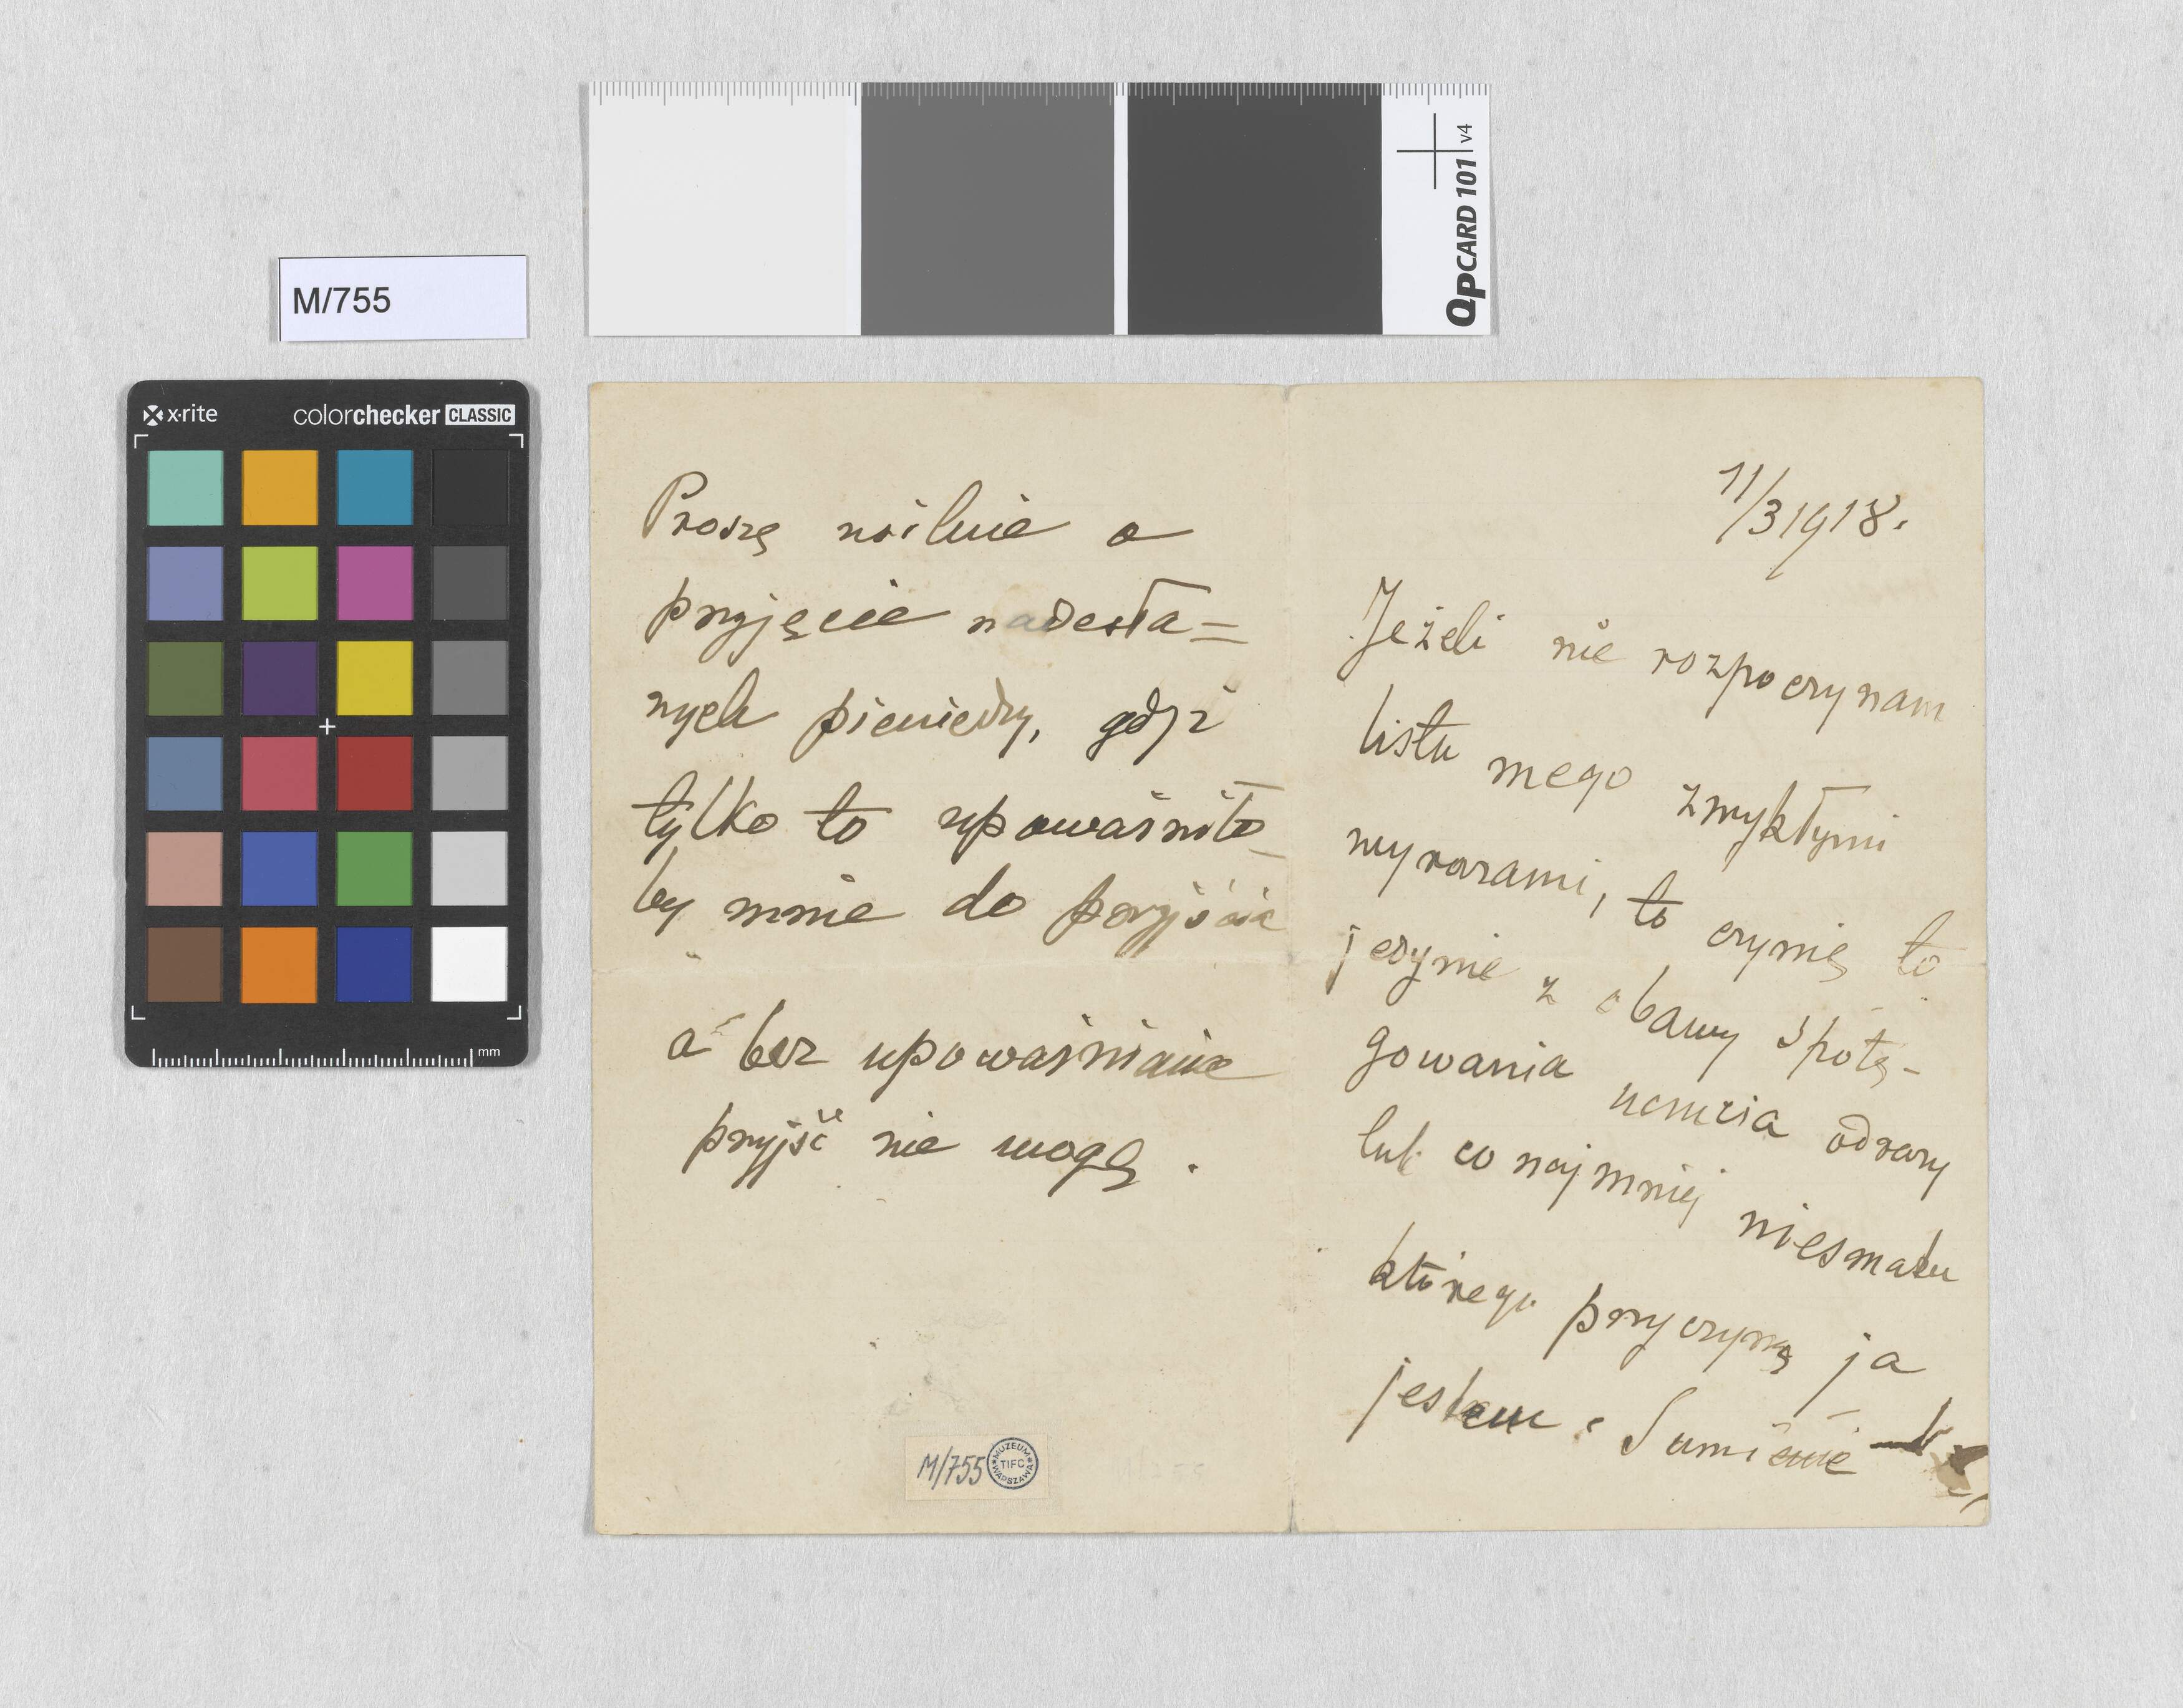 QpCARD 101 v4
M/755
x·rite colorchecker CLASSIC
mm
Proszę usilnie o
przyjęcie nadesła=
nych pieniędzy, gdyż
tylko to upoważniło
by mnie do przyjścia
a bez upoważnienia
przyjść nie mogę.
M/755
MUZEUM TIFC WARSZAWA
11/3 1918.
Jeżeli nie rozpoczynam
listu mego zwykłymi
wyrazami, to czynię to
jedynie z obawy spotę-
gowania uczucia odrazy
lub co najmniej niesmaku
którego przyczyną ja
jestem. Sumienie